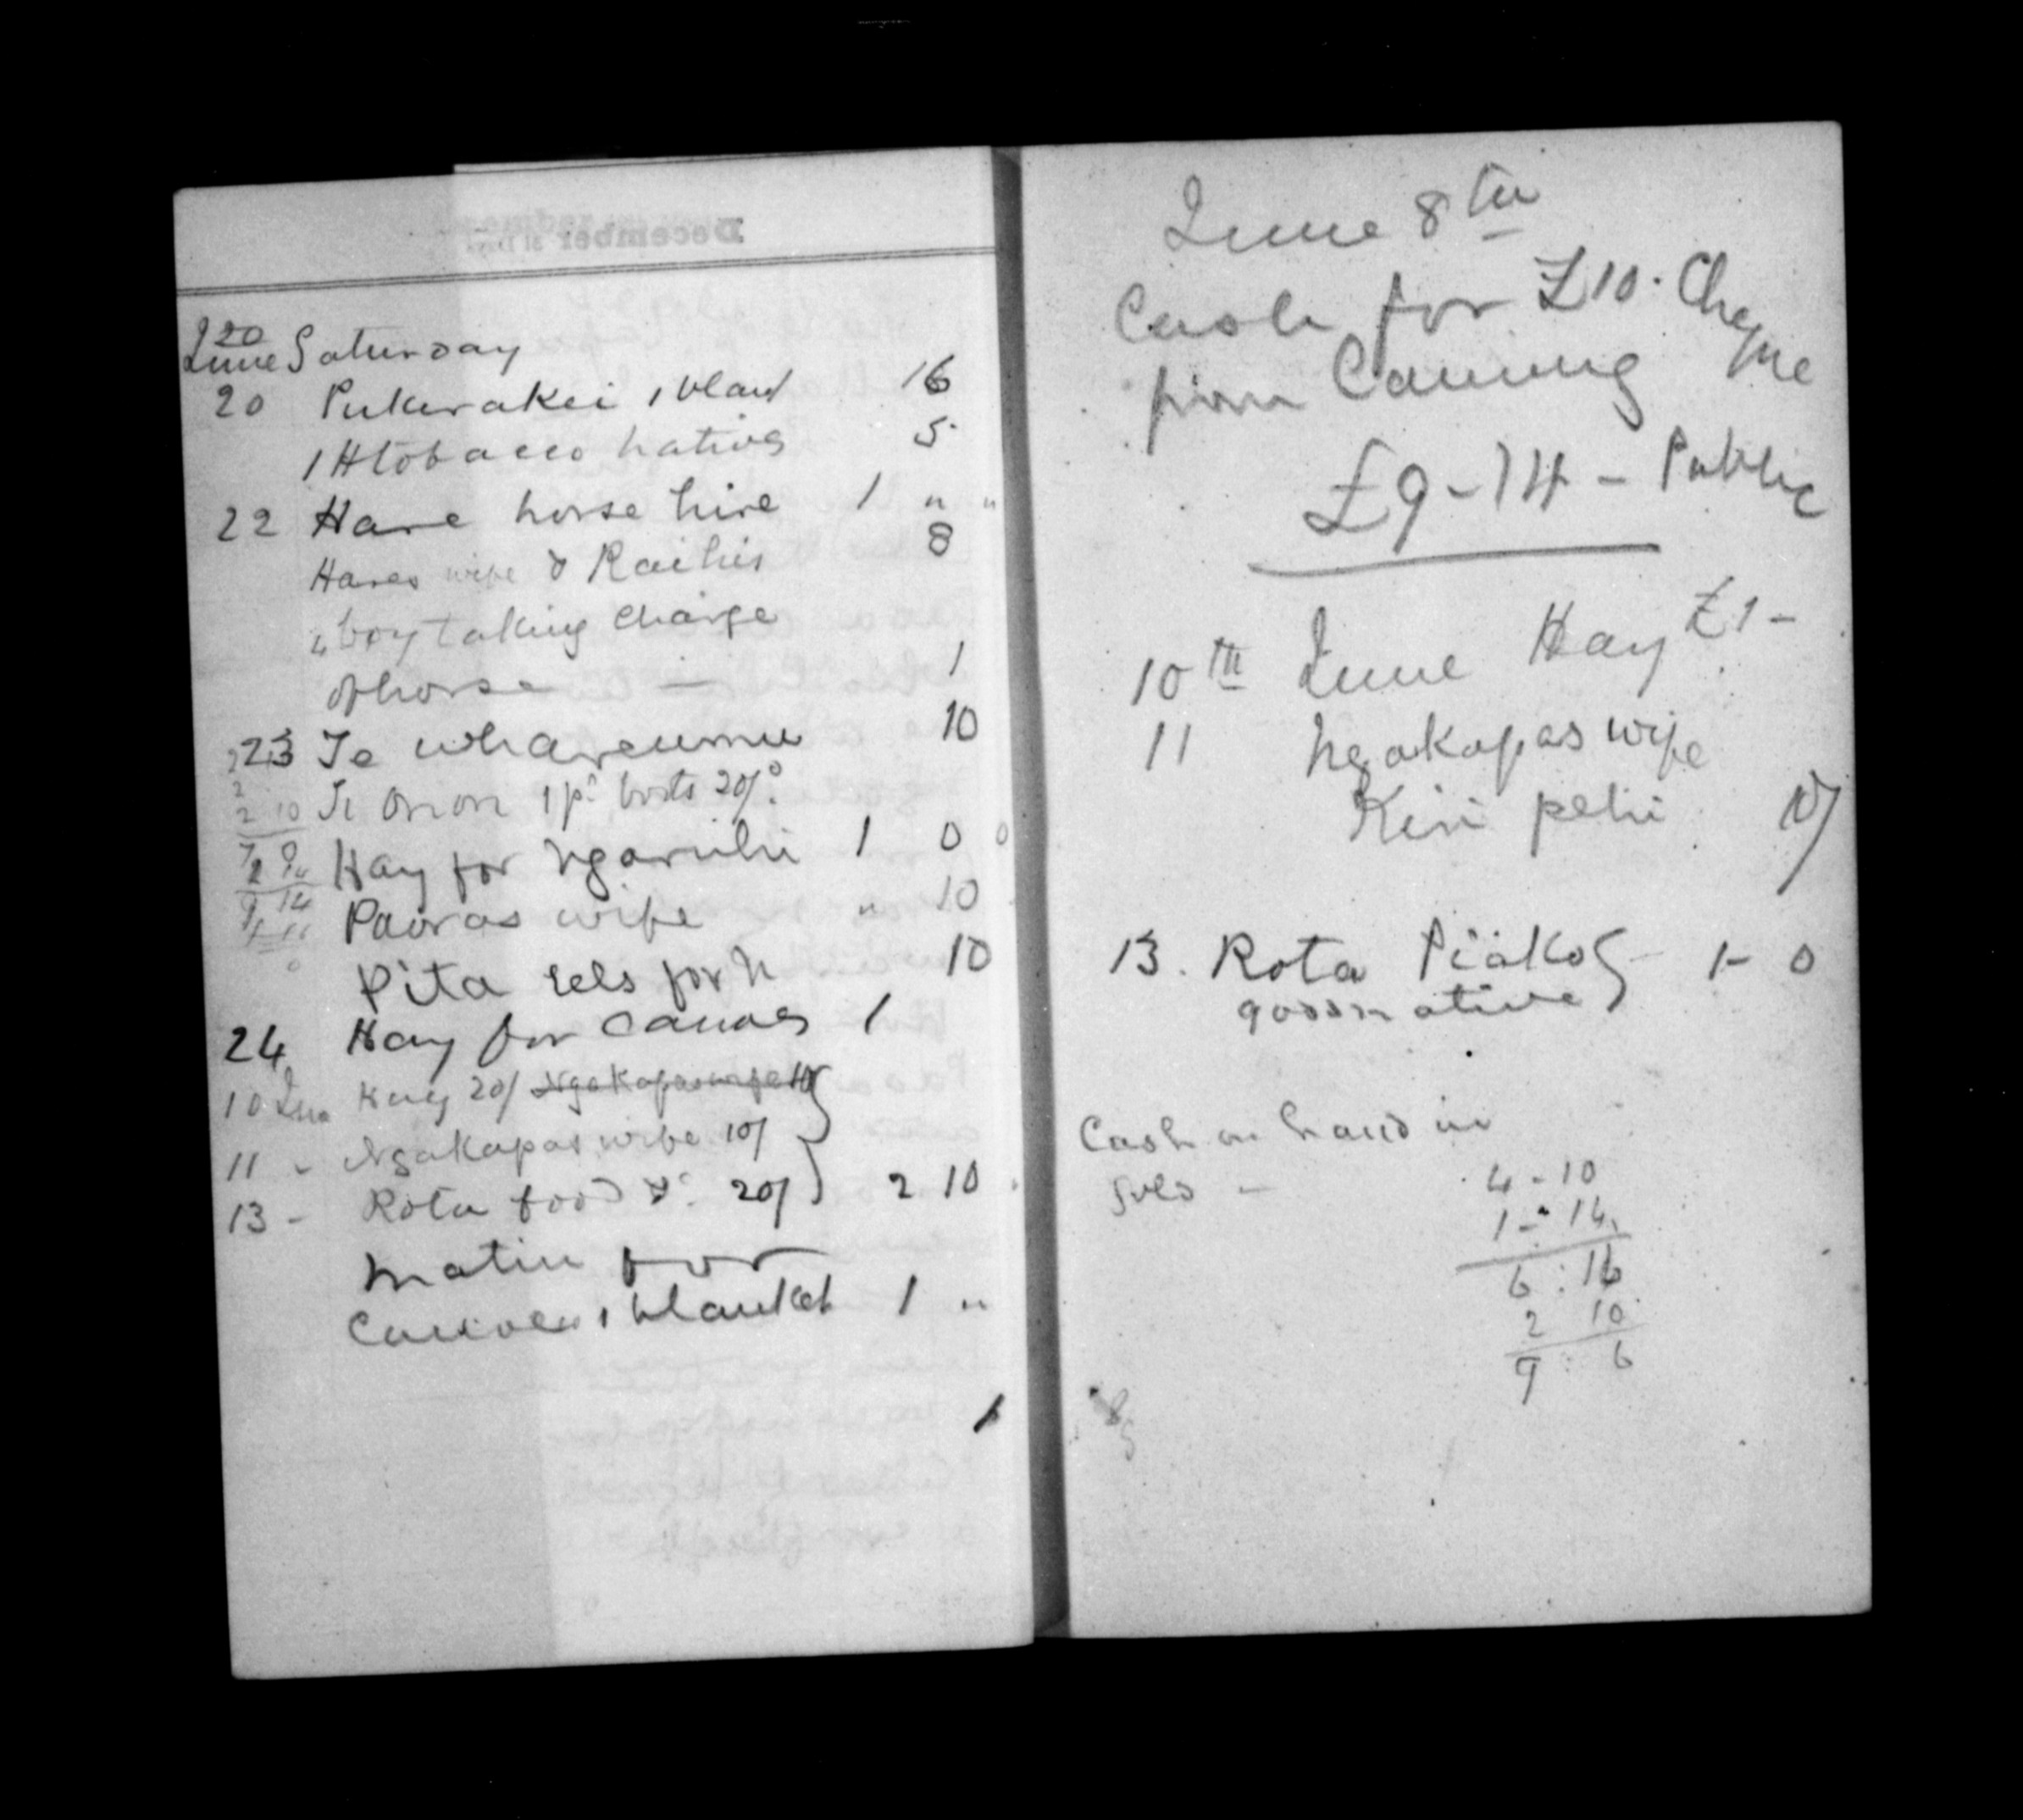 20
June Saturday
20 Pukerakei 1 blant 16
1 lb tobacco natives 5
22 Hare horse hire 1 " "
Hares wife & Raihis 8
" boy taking charge
of horse — 1
23 Te Whareumu 10
Te Oriori 1 pr boots 20/.
Hay for Ngaruhi 1 0 0
Paoras wife " 10
Pita eels for N 10
24 Hay for canoes 1
10 June Hay 20/ Ngakapas wife 10/
11 - Ngakapas wife 10/
13 - Rota food &c 20/ 2 10
Matiu for
Canoes 1 blanket 1 "
1
June 8th
Cash for £10. Cheque
from Canning
£9-14- Public
10th June Hay £1-
11 Ngakapas wife
Kiri pehi 10/
13. Rota Piako 1- 0
good native
Cash on hand in
4-10
1-14
6:16
2 10
9:6